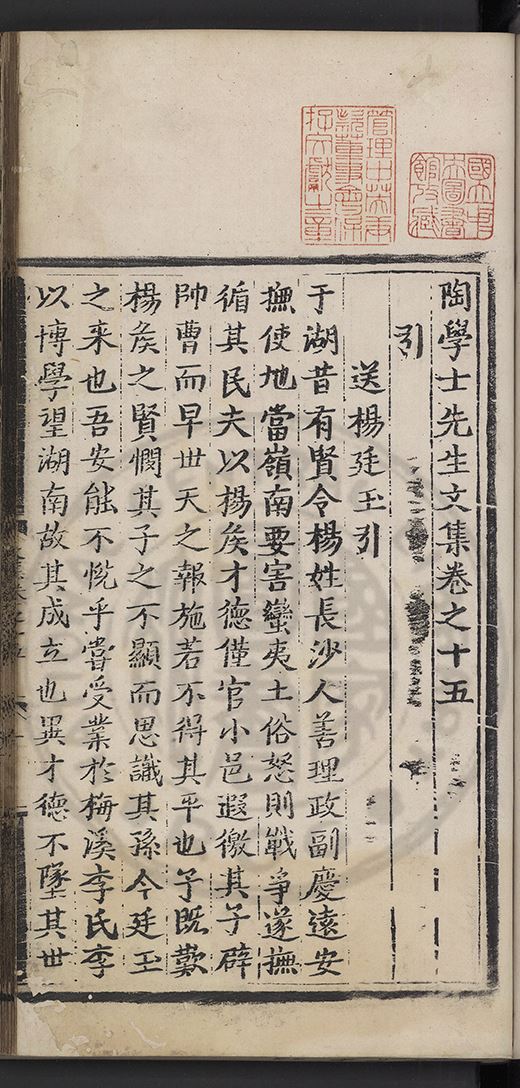 陶學士先生文集卷之十五
引
送楊廷玉引
于湖昔有賢令楊姓長沙人善理政副慶遠安
撫使地當嶺南要害蠻夷土俗怒則戰爭遂撫
循其民夫以楊矦才德僅官小邑遐徼其子辟
帥曹而早世天之報施若不得其平也予既歎
楊矦之賢憫其子之不顯而思識其孫今廷玉
之来也吾安能不恱乎嘗受業於梅溪李氏李
以博學望湖南故其成立也異才德不墜其世
國立中央圖書館收藏
管理中英庚款董事會保存文獻之章